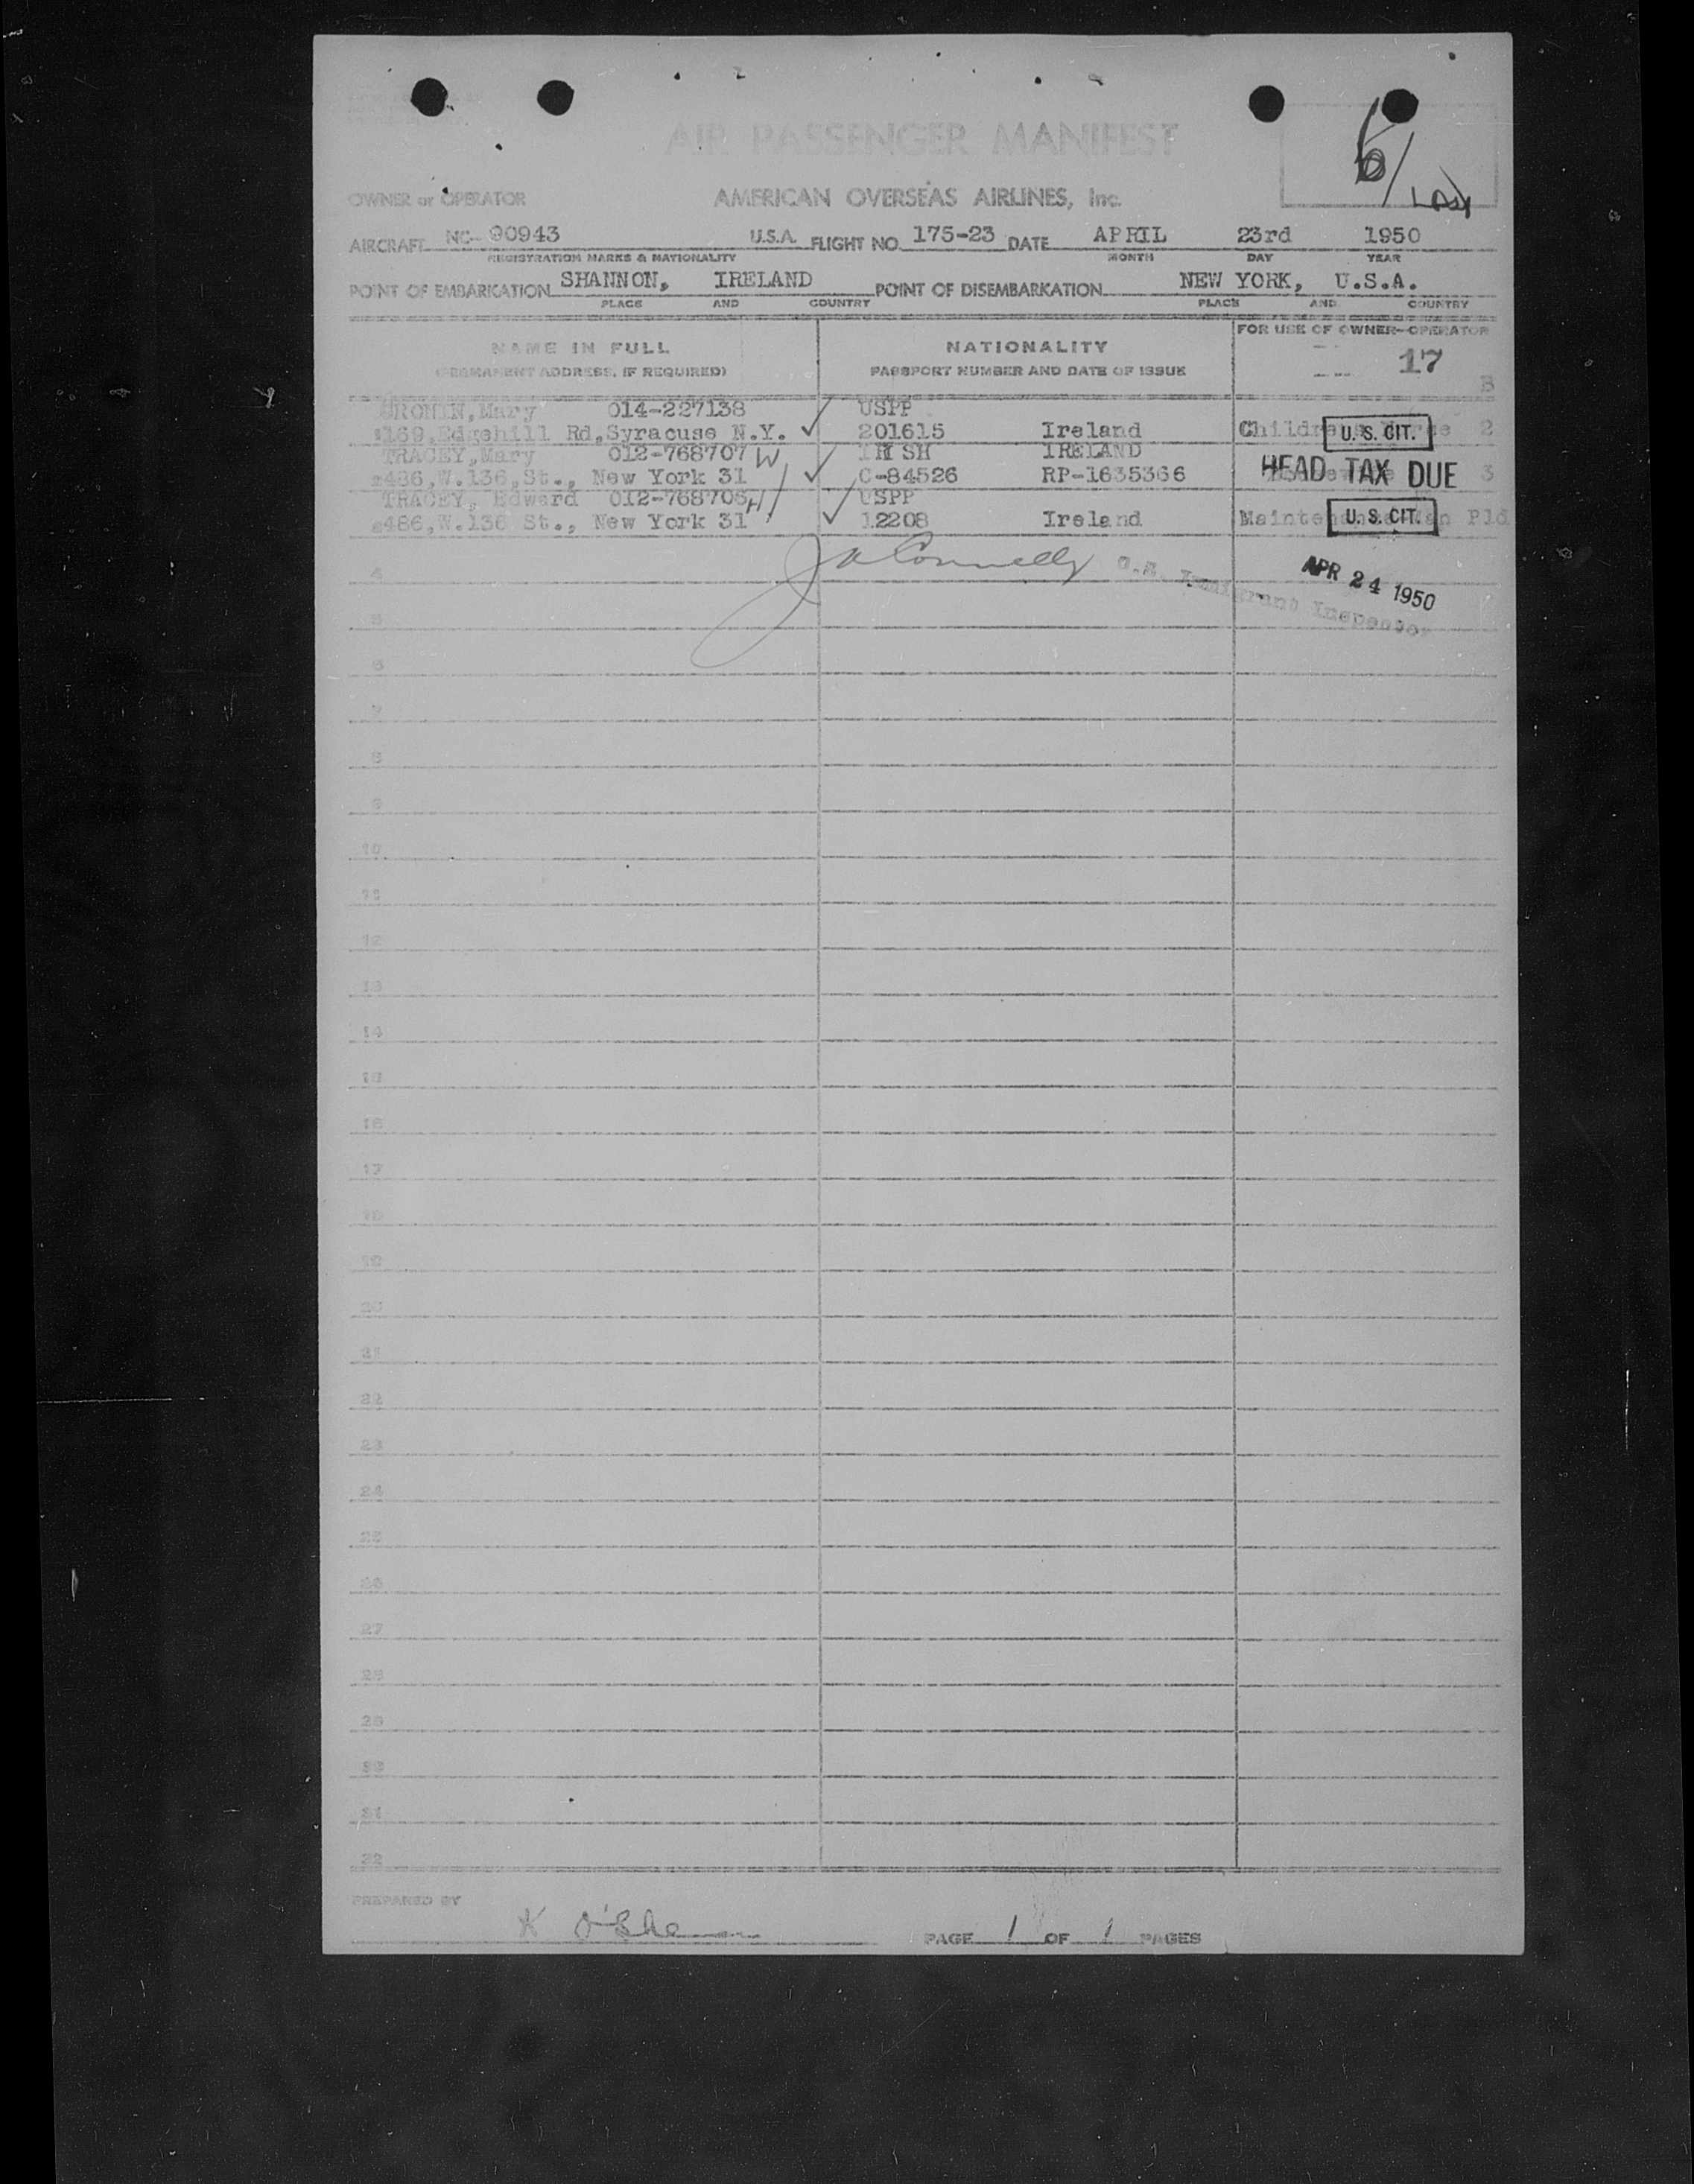 AIR PASSENGER MANIFEST
6/
LAST
OWNER or OPERATOR AMERICAN OVERSEAS AIRLINES, Inc.
AIRCRAFT NC- 90943 U.S.A. FLIGHT NO. 175-23 DATE APRIL 23rd 1950
REGISTRATION MARKS & NATIONALITY MONTH DAY YEAR
POINT OF EMBARKATION SHANNON, IRELAND POINT OF DISEMBARKATION NEW YORK, U.S.A.
PLACE AND COUNTRY PLACE AND COUNTRY
NAME IN FULL NATIONALITY FOR USE OF OWNER-OPERATOR
(PERMANENT ADDRESS, IF REQUIRED) PASSPORT NUMBER AND DATE OF ISSUE 17
B
CRONIN, Mary 014-227138 USPP
169, Edgehill Rd, Syracuse N.Y. 201615 Ireland U. S. CIT. 2
TRACEY, Mary 012-768707 W IRISH IRELAND
486, W.136, St., New York 31 C-84526 RP-1635366 HEAD TAX DUE 3
TRACEY, Edward 012-768706 H USPP
486, W.136 St., New York 31 12208 Ireland U. S. CIT. Pld
4 J A Connelly U.S. Immigrant Inspector APR 24 1950
5
6
7
8
9
10
11
12
13
14
15
16
17
18
19
20
21
22
23
24
25
26
27
28
29
30
31
32
PREPARED BY
K O'Shea PAGE 1 OF 1 PAGES